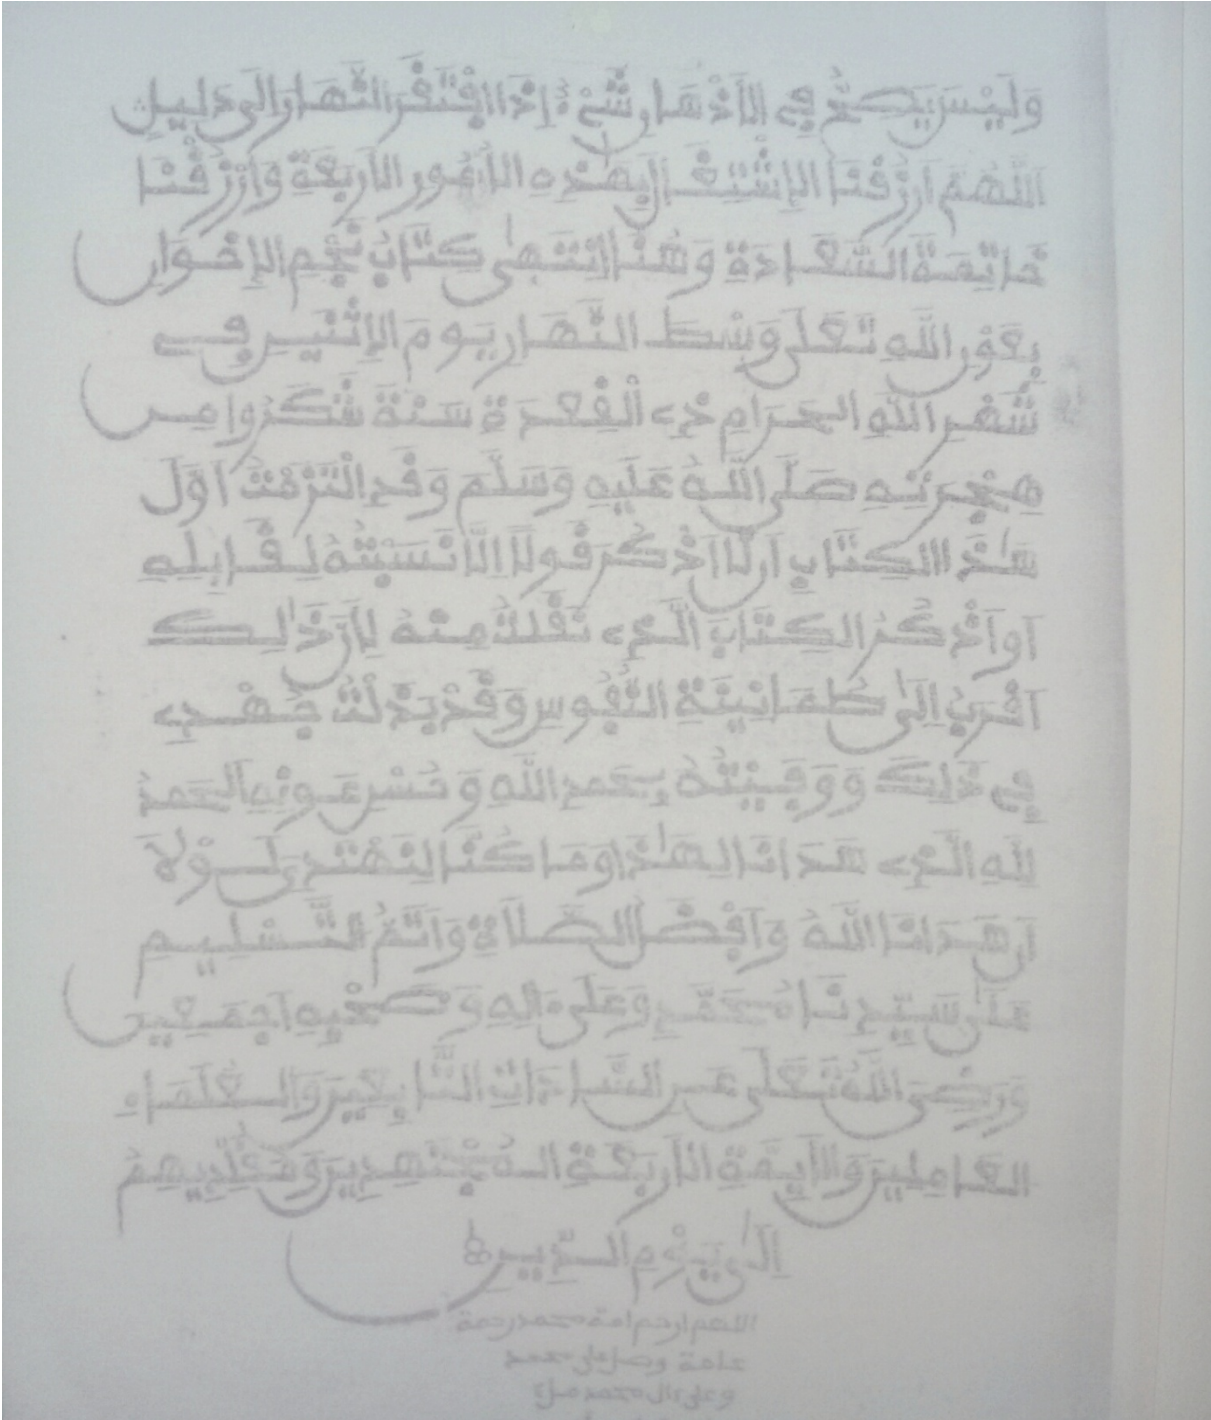 وَلَيْسَ يَصِحُّ فِے الاَذْهَانِ شَےْءٌ إِذَا اَفْتَقَرَ النَّهَارُ إِلَى دَلِيلِ
اَللَّهُمَّ اَرْزُقْنَا الاِشْتِغَالَ بِهَذِهِ الاُمُورِ الاَرْبَعَةِ وَارْزُقْنَا
خَاتِمَةَ السَّعَادَةِ وَهُنَا اَنْتَهَى كِتَابُ نَجْمِ الاِخْوَانِ
بِعَوْنِ اللَّهِ تَعَلَى وَسْطَ النَّهَارِ يَوْمَ الاِثْنَيْنِ فِے
شَهْرِ اللَّهِ الحَرَامِ ذِے الْقِعْدَةِ سَنَةَ شَكَرُوا مِن
هِجْرَتِهِ صَلَّى اللَّهُ عَلَيْهِ وَسَلَّمَ وَقَدِ الْتَزَمْتُ اَوَّلَ
هَٰذَا الكِتَابِ اَن لَّا اَذْكُرَ قَوْلاً اِلَّا نَسَبْتُهُ لِقَابِلِهِ
اَوَاَذْكُرُ الكِتَابَ الَّذِے نَقَلْتُ مِنْهُ لِأَنَّ ذَٰلِكَ
اَقْرَبُ اِلَىٰ طُمَانِينَةِ النُّفُوسِ وَقَدْ بَذَلْتُ جُهْدِے
فِے ذَٰلِكَ وَوَفَّيْتُهُ بِحَمْدِ اللَّهِ وَحُسْنِ عَوْنِهِ الحَمْدُ
لِلَّهِ الَّذِے هَدَانَا لِهَٰذَا وَمَا كُنَّا لِنَهْتَدِيَ لَوْلَا
أَنْ هَدَانَا اللَّهُ وَأَفْضَلُ الصَّلَاةِ وَأَتَمُّ التَّسْلِيمِ
عَلَى سَيِّدِنَا مُحَمَّدٍ وَعَلَى ءَالِهِ وَصَحْبِهِ أَجْمَعِينَ
وَرَضِيَ اللَّهُ تَعَلَى عَنِ السَّادَاتِ التَّابِعِينَ وَالعُلَمَاءِ
العَامِلِينَ وَالاَيِمَّةِ الاَرْبَعَةِ المُجْتَهِدِينَ وَمُقَلِّدِيهِمُ
اِلَىٰ يَوْمِ الدِّينِ
اللهم ارحم امة محمد رحمة
عامة وصل على محمد
وعلى ال محمد